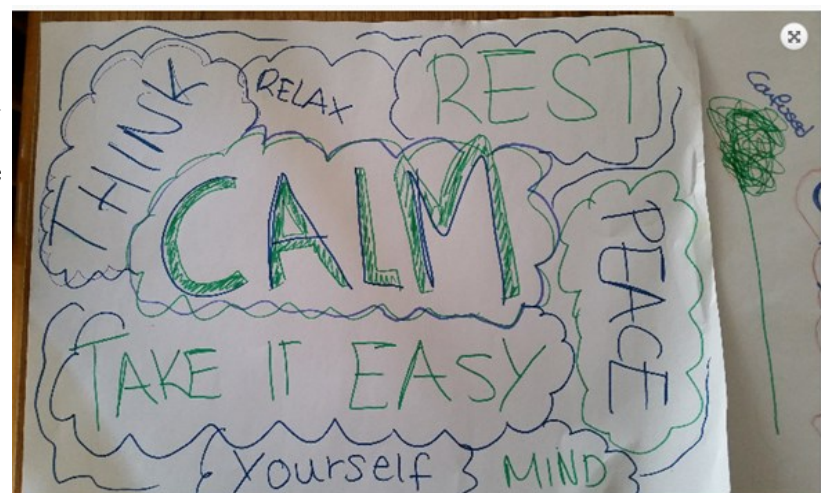 THINK
RELAX
REST
CALM
PEACE
TAKE IT EASY
Yourself
MIND
Confused